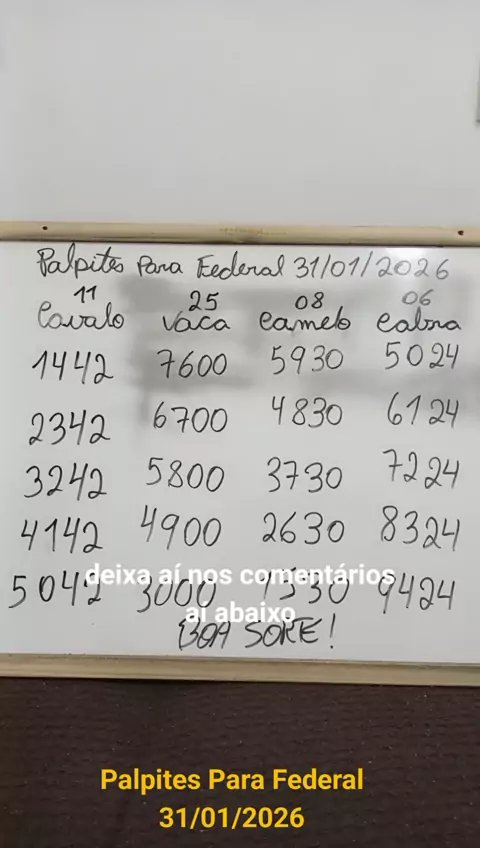 Palpites Para Federal 31/01/2026
11 25 08 06
Cavalo Vaca Camelo Cabra
1442 7600 5930 5024
2342 6700 4830 6124
3242 5800 3730 7224
4142 4900 2630 8324
5042 3000 1530 9424
deixa aí nos comentários
aí abaixo
BOA SORTE!
Palpites Para Federal
31/01/2026